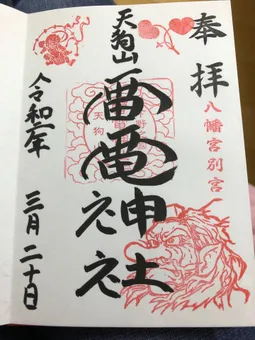 奉拝
八幡宮別宮
天狗山
雷電神社
令和二年
三月二十日